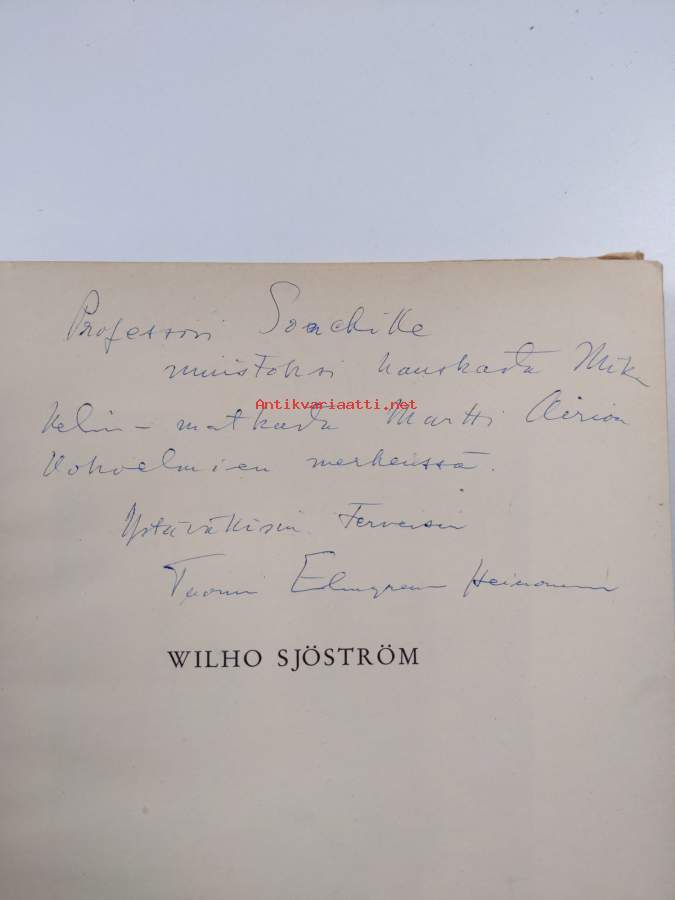 Professori
muistoksi hauskasta Mik
kelin-matkasta Martti Airion
Kokoelmien merkeissä.
Ystävällisin Terveisin
Tuomi Elmgren Heinonen
WILHO SJÖSTRÖM
Antikvariaatti.net